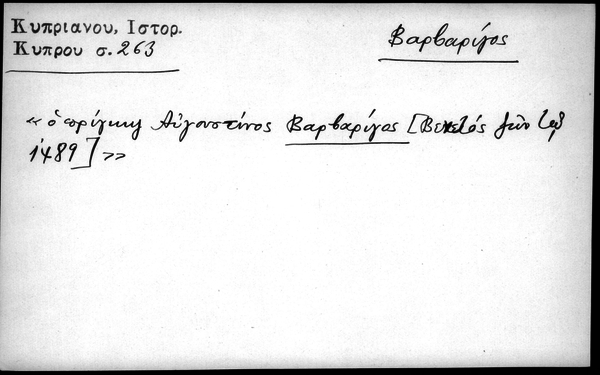 Κυπριανου, Ιστορ.
Κυπρου σ. 263
Βαρβαρίγος
« ὁ πρίγκιψ Αὐγουστίνος Βαρβαρίγος [Βενετός
1489] »